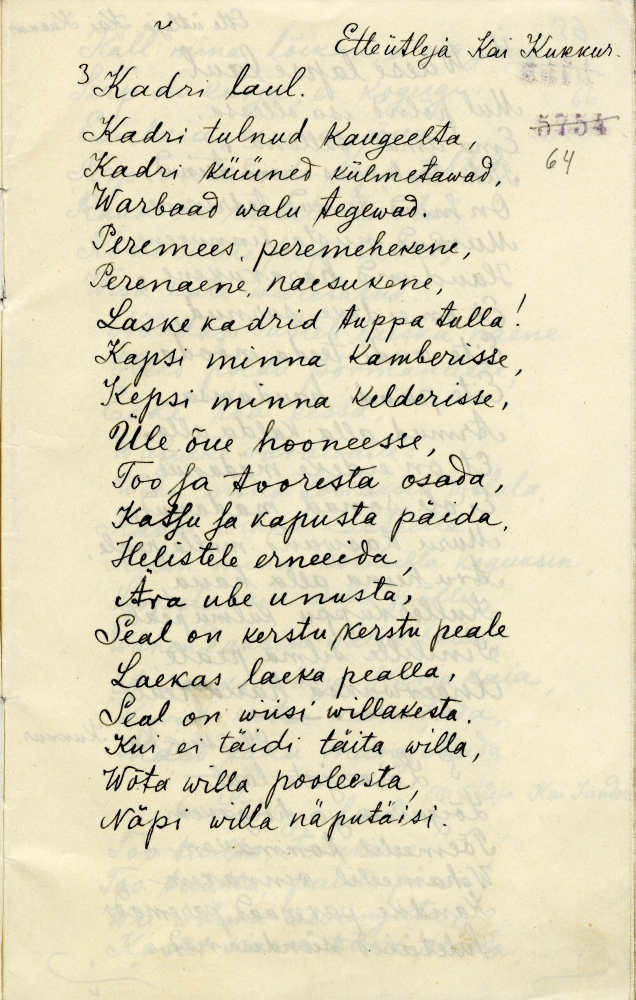 Etteütleja Kai Kukkur.
3 Kadri laul.
5754
64
Kadri tulnud kaugeelta,
Kadri küüned külmetawad,
Warbaad walu tegewad.
Peremees, peremehekene,
Perenaene, naesukene,
Laske kadrid tuppa tulla!
Kapsi minna kamberisse,
Kepsi minna kelderisse,
Üle õue hooneesse,
Too ja tooresta osada,
Katsu ja kapusta päida,
Helistele erneeida,
Ära ube unusta,
Seal on kerstu, kerstu peale
Laekas laeka pealla,
Seal on wiisi willakesta.
Kui ei täidi täita willa,
Wõta willa pooleesta,
Näpi willa näputäisi.